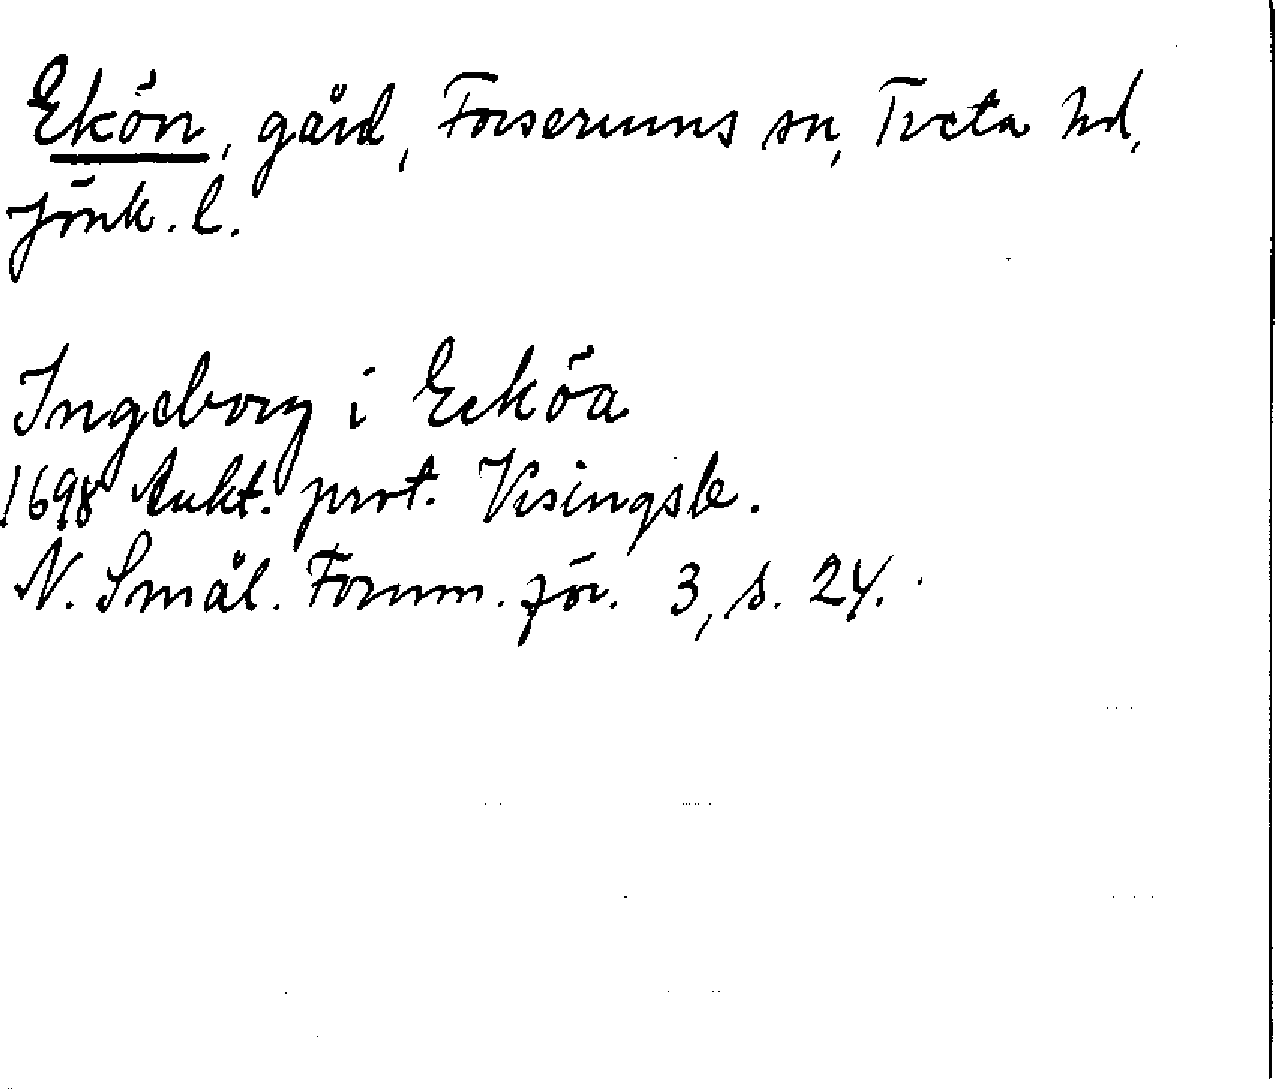 Ekön, gård, Forserums sn, Tveta hd,
Jönk. l.
Ingeborg i Eeköa
1698 Aukt. prot. Visingsb.
N. Smål. Fornm. för. 3, s. 24.